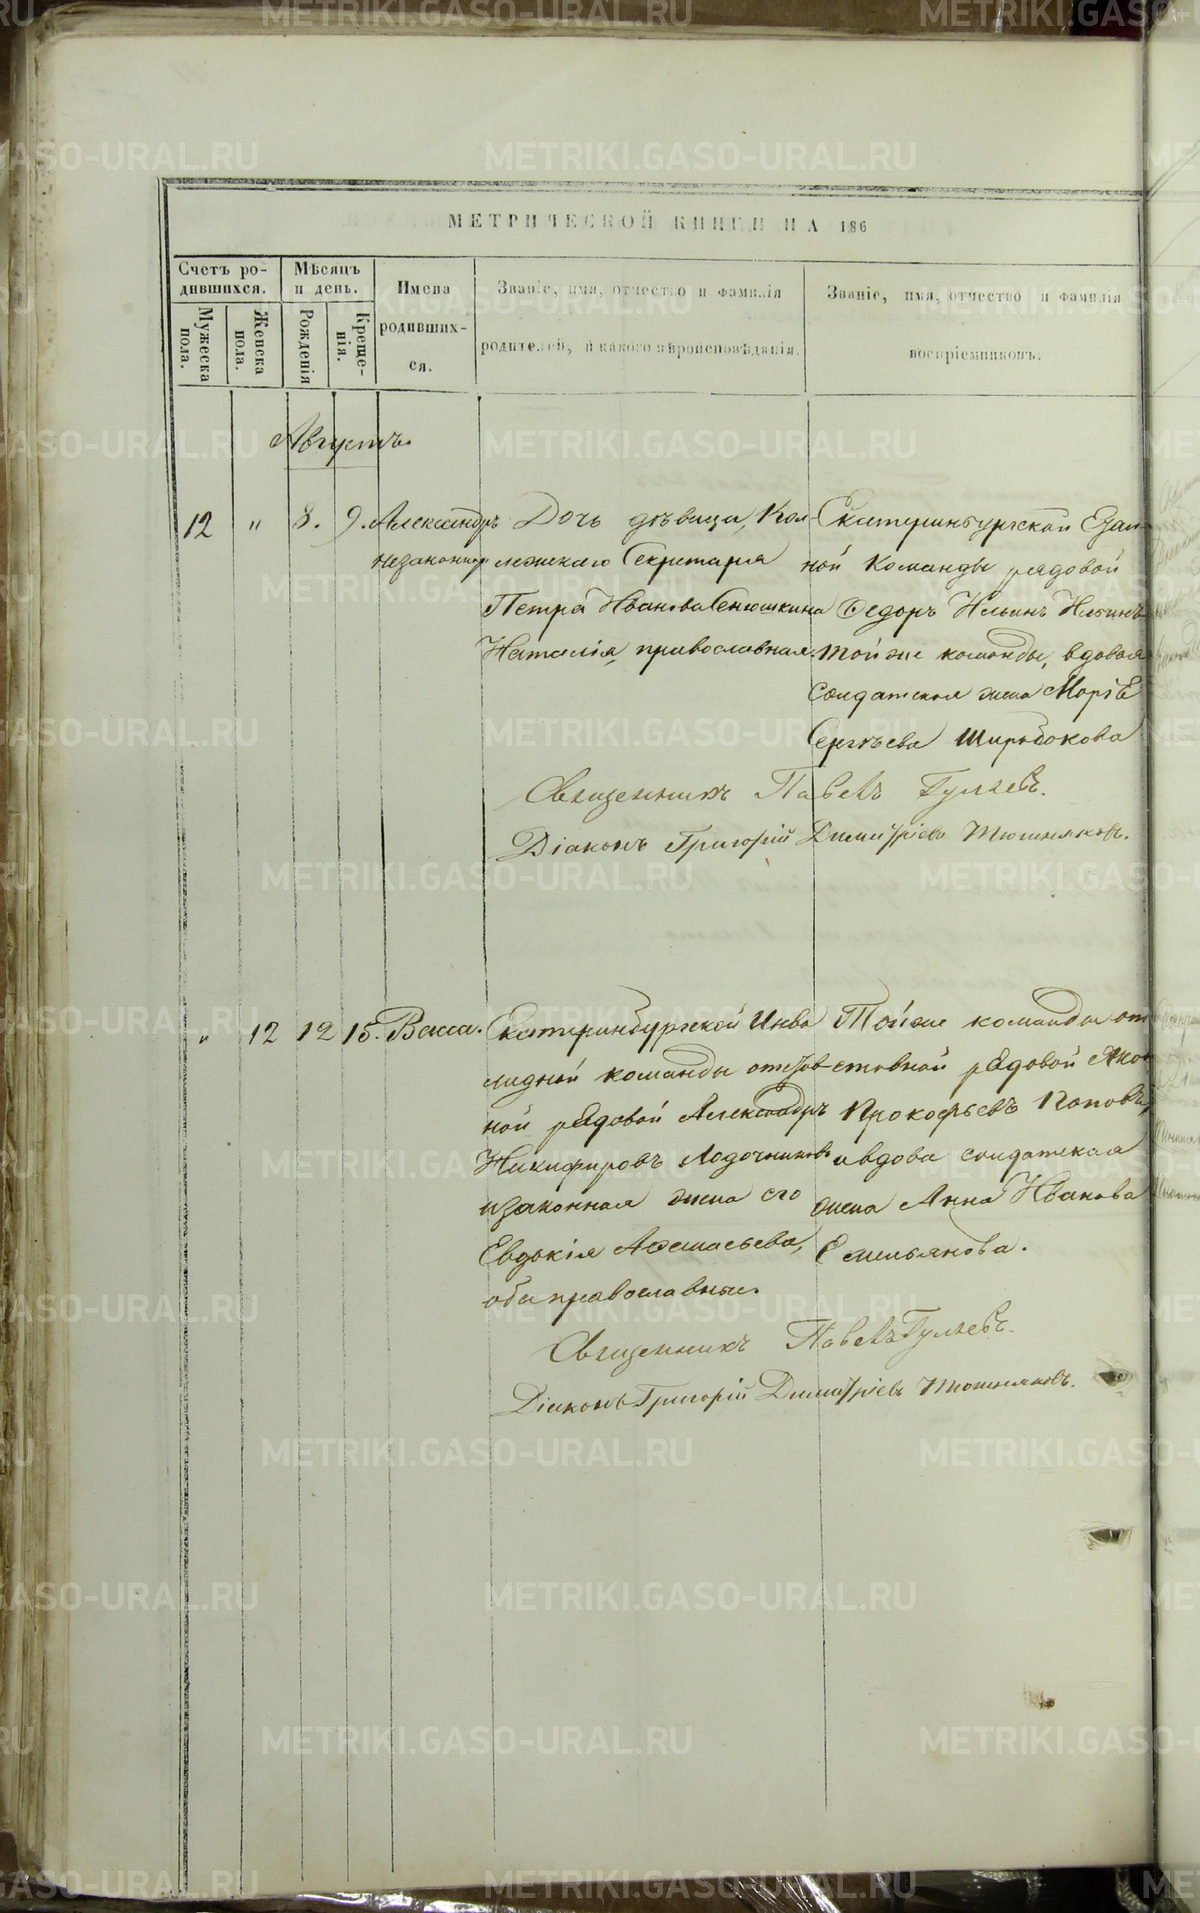 МЕТРИЧЕСКОЙ КНИГИ НА 186
Счетъ ро-
дившихся.
Мѣсяцъ
и день.
Имена
родивших-
ся.
Званіе, имя, отчество и фамилія
родителей, и какого вѣроисповѣданія.
Званіе, имя, отчество и фамилія
воспріемниковъ.
Мужеска
пола.
Женска
пола.
Рожденія
Креще-
нія.
Августъ.
12 " 8. 9. Александръ
незаконнор
Дочь дѣвица, Кол-
лежскаго Секретаря
Петра Иванова Сенюшкина
Наталія, православная.
Екатеринбургской
ной Команды рядовой
Ѳедоръ Ильинъ Ильинъ
той же команды, вдовая
солдатская жена Марія
Сергѣева Широбокова
Священникъ Павелъ Гуляевъ.
Діаконъ Григорій Димитріевъ Тюшняковъ.
" 12 12 15. Васса.
Екатеринбургской Инва
лидной команды отстав
ной рядовой Александръ
Никифоровъ Лодочниковъ
и законная жена его
Евдокія Аѳанасьева,
оба православные.
Той же команды от
ставной рядовой
Прокофьевъ Поповъ,
и вдова солдатская
жена Анна Иванова
Емельянова.
Священникъ Павелъ Гуляевъ.
Діаконъ Григорій Димитріевъ Тюшняковъ.
METRIKI.GASO-URAL.RU